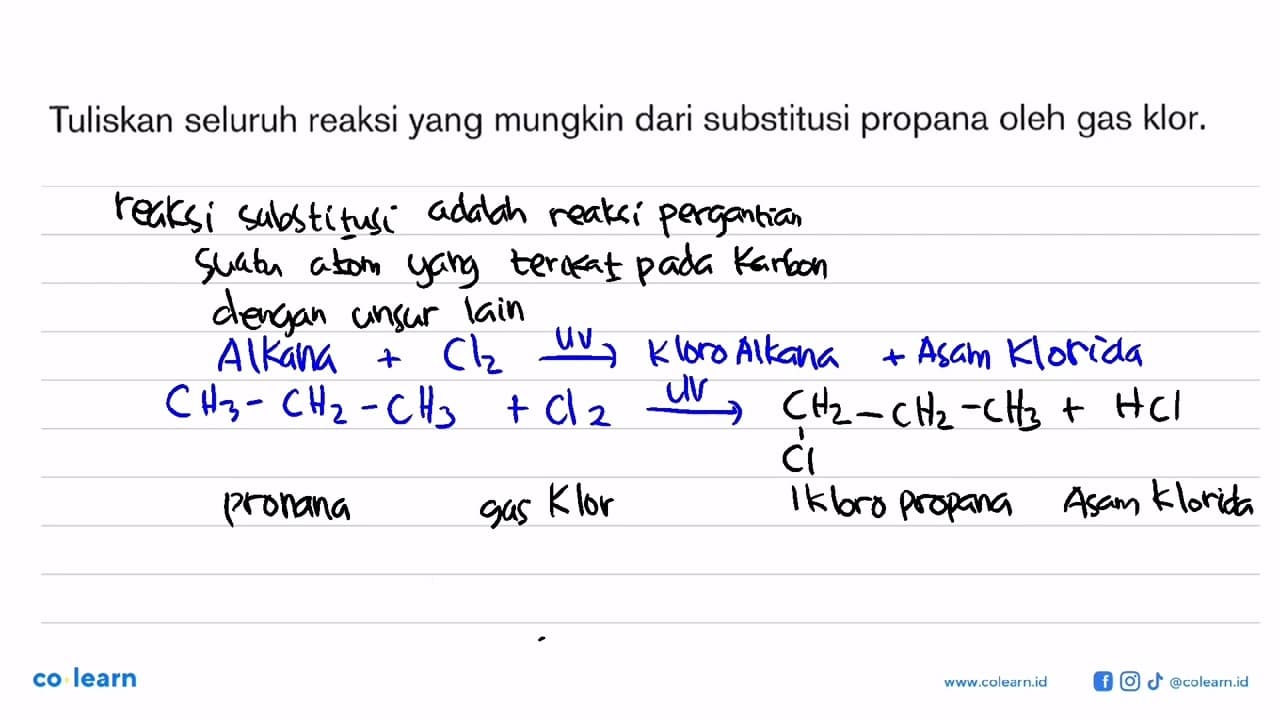 Tuliskan seluruh reaksi yang mungkin dari substitusi propana oleh gas klor.
reaksi substitusi adalah reaksi pergantian
suatu atom yang terikat pada karbon
dengan unsur lain
Alkana + Cl2 UV → Kloro Alkana + Asam Klorida
CH3 - CH2 - CH3 + Cl2 UV → CH2 - CH2 - CH3 + HCl
Cl
propana gas Klor 1 kloro propana Asam klorida
co learn www.colearn.id @colearn.id